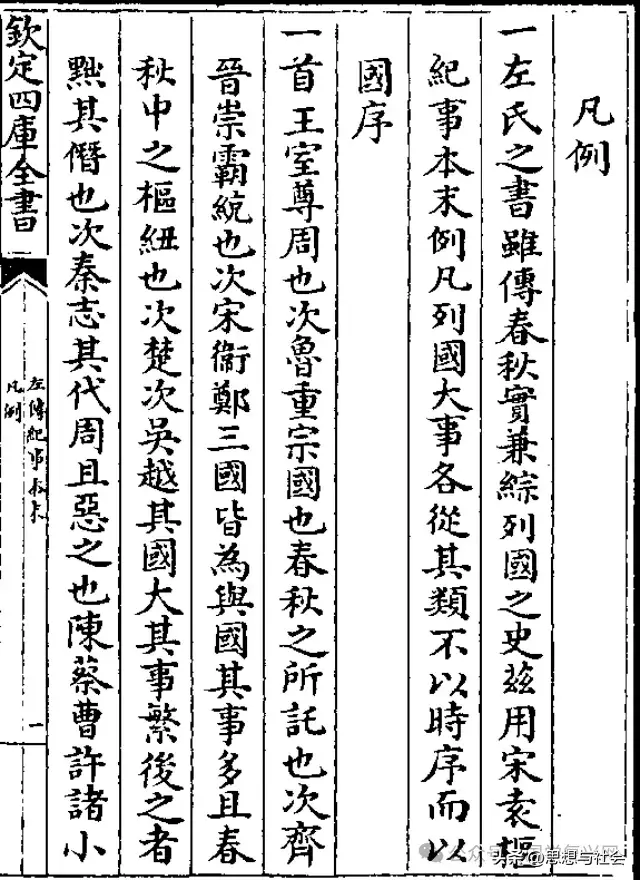 凡例
一左氏之書雖傳春秋實兼綜列國之史兹用宋袁樞
紀事本末例凡列國大事各從其類不以時序而以
國序
一首王室尊周也次魯重宗國也春秋之所託也次齊
晉崇霸統也次宋衞鄭三國皆為與國其事多且春
秋中之樞紐也次楚次吳越其國大其事繁後之者
黜其僭也次秦志其代周且惡之也陳蔡曹許諸小
欽定四庫全書
左傳紀事本末
凡例
一
头条@思想与社会